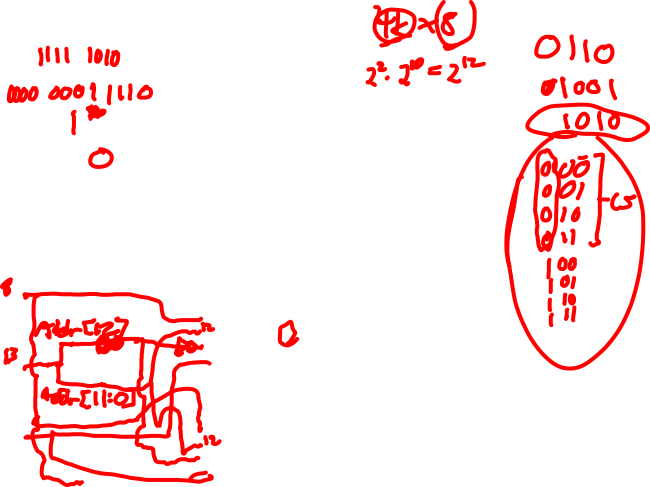 1111 1010
0000 0001 1110
1
0
4k × 8
2² · 2¹⁰ = 2¹²
0110
01001
1010
000
001
010
011
CS
100
101
110
111
8
Addr[12]
12
13
Addr[11:0]
12
0